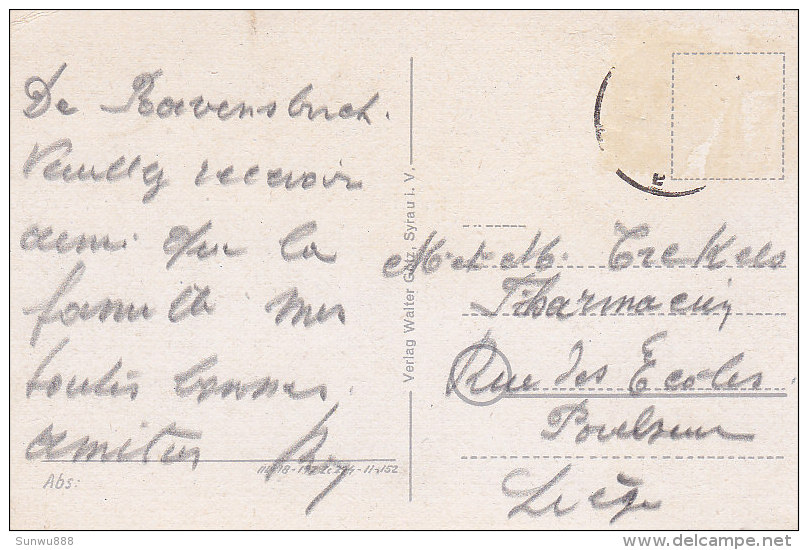 De Ravensbuck.
Veuillez recevoir
ainsi que la
famille mes
toutes bonnes
amities
Abs:
Verlag Walter Götz, Syrau i. V.
M et M. Trekels
Pharmacien
Rue des Ecoles
Poulseur
Liège
Sunwu888
delcampe.net